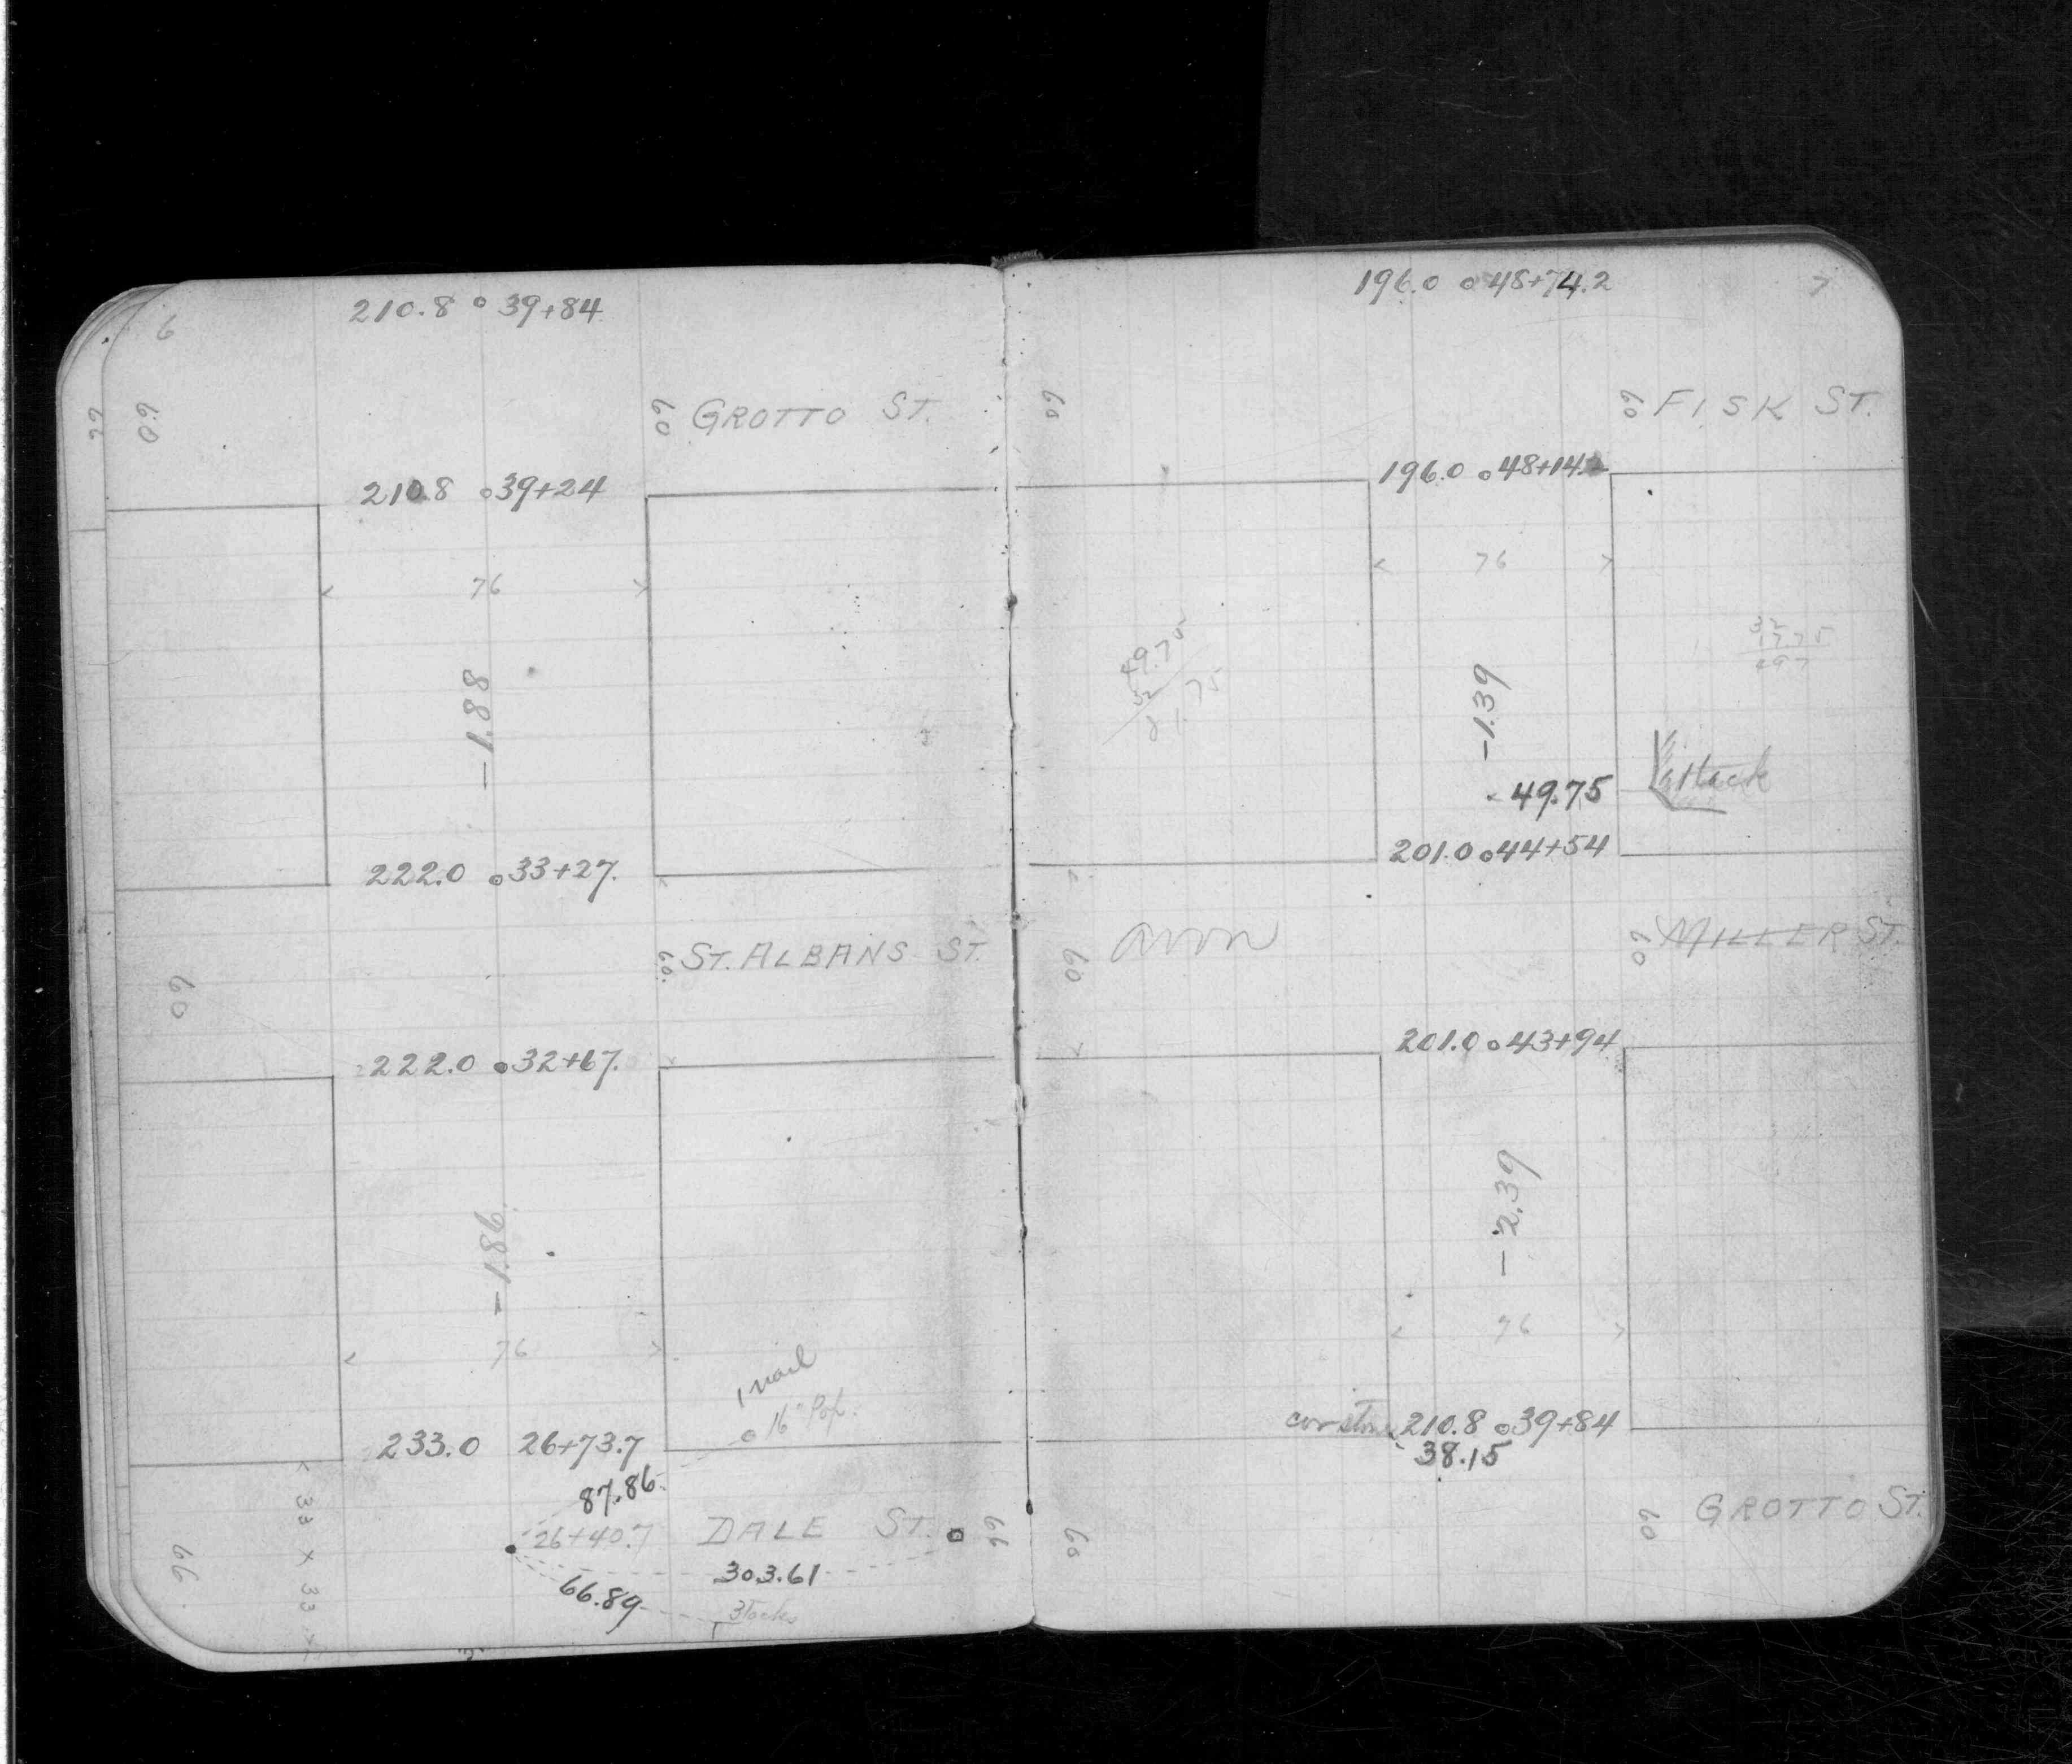 6
210.8 o 39+84
66
60
60 GROTTO ST.
210.8 o 39+24
76
-1.88
222.0 o 33+27.
60
60 ST. ALBANS ST.
222.0 o 32+67.
-1.86
76
1 nail
16" Pop.
233.0 26+73.7
87.86
26+40.7 DALE ST. 66
66
33 X 33
303.61
66.89
3 Tacks
196.0 o 48+74.2
7
60
60 FISK ST.
196.0 o 48+14.2
76
49.75
32
81.75
32
17.75
497
-1.39
49.75
201.0 o 44+54
avon
60
60 MILLER ST.
201.0 o 43+94
-2.39
76
cor stone 210.8 o 39+84
38.15
60
60 GROTTO ST.